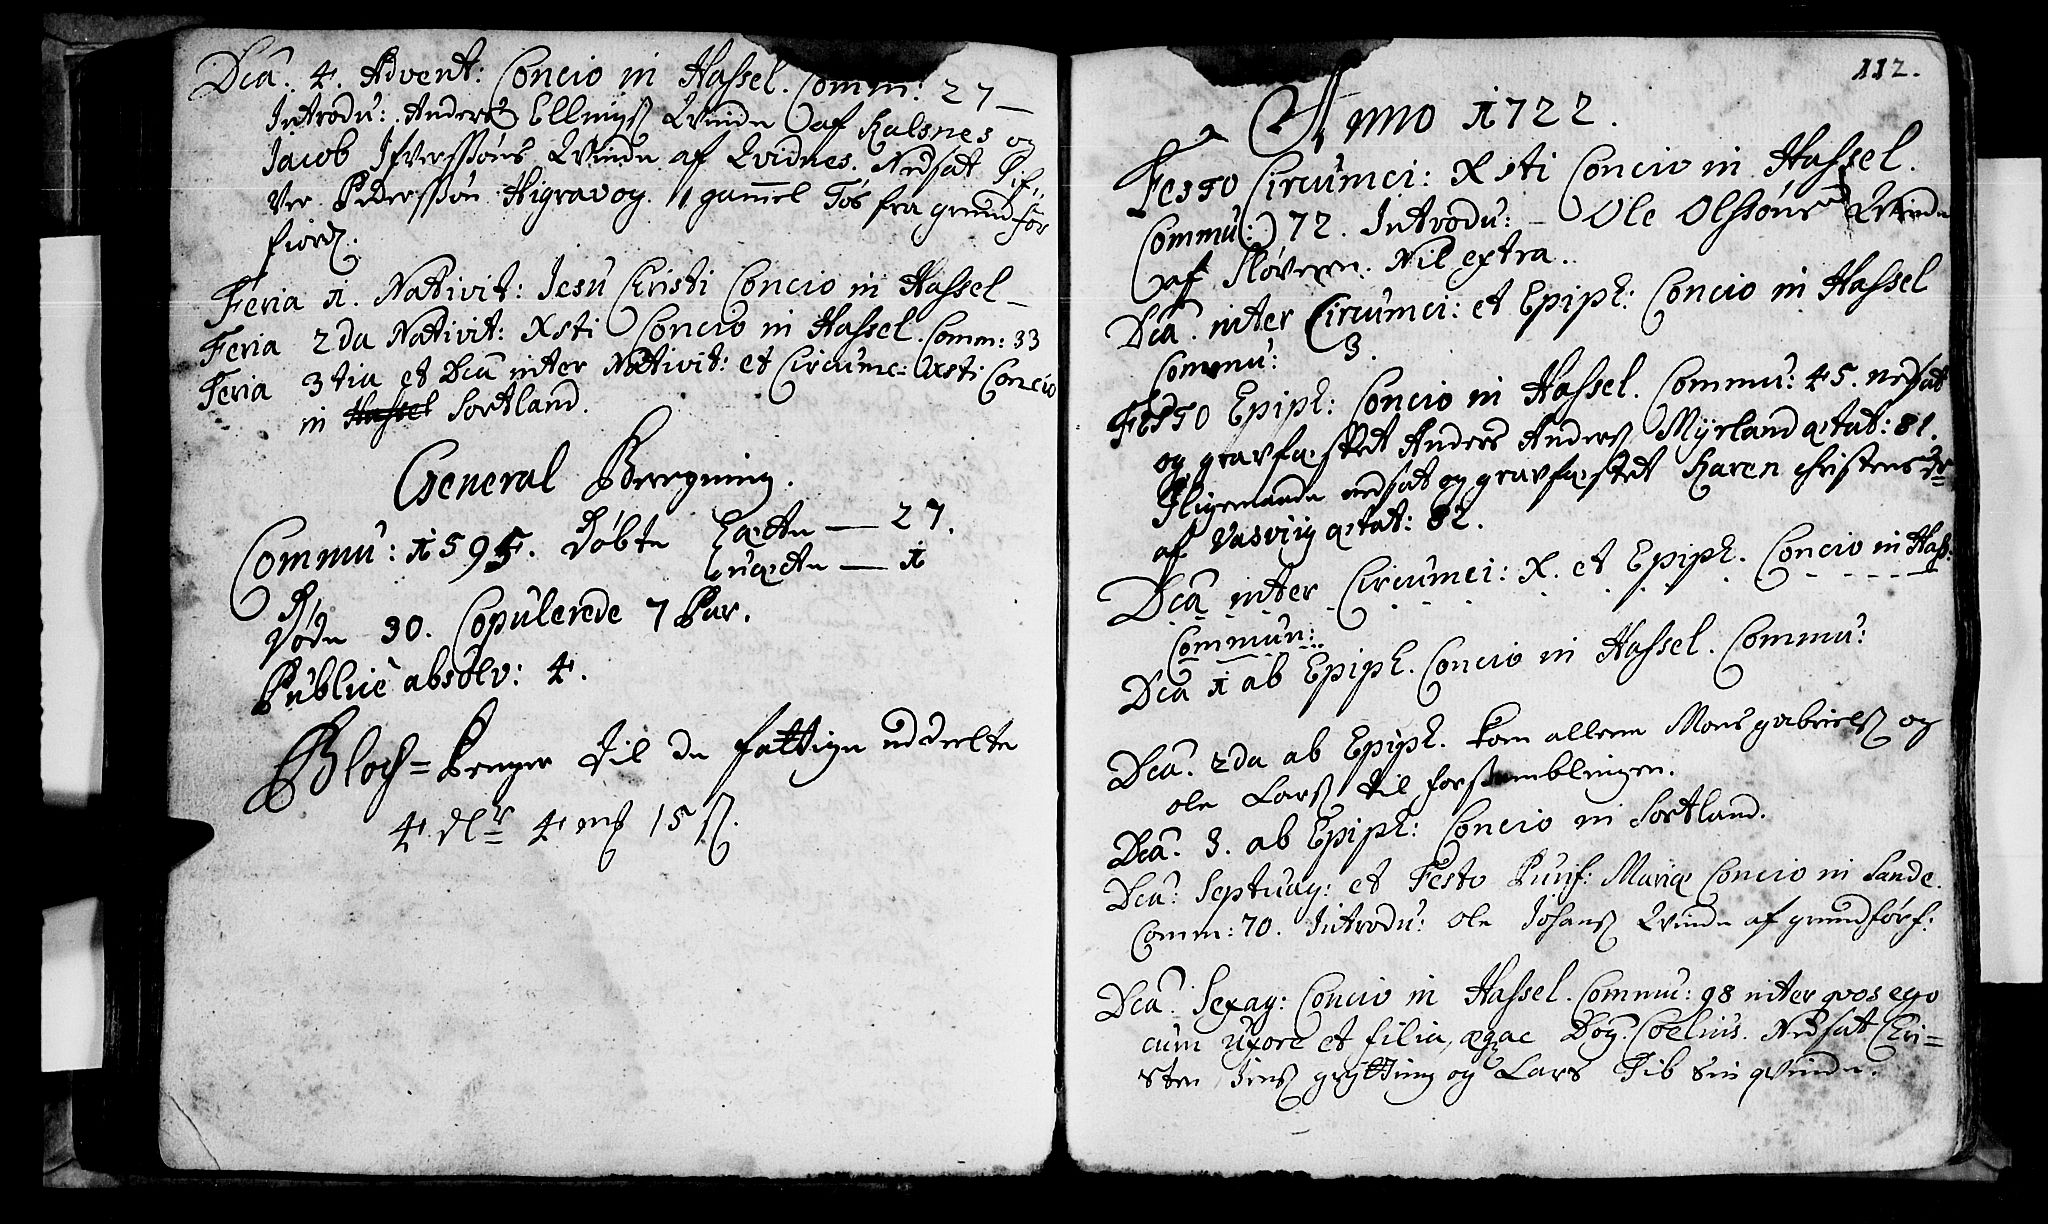 Dca. 4. Advent: Concio in Hassel. Comm: 27 —
Introdu: Anders Ellingsß Qvinde af Kalsnes og
Jacob Ifverssøns Qvinde af Qvidnes. Nedsat Sif-
ver Pederssøn Higravog. 1 gammel Tøs fra grundfør
fiord.
Feria 1. Nativit: Jesu Christi Concio in Hassel —
Feria 2da Nativit: Xsti Concio in Hassel. Comm: 33
Feria 3tia et Dca inter Nativit: et Circumc: Xsti Concio
in Hassel Sortland.
General Beregning.
Commu: 1595. Døbte Ægte — 27.
Uægte — 1
Døde 30. Copulerede 7 Par.
Publice absolv: 4.
Bloch-Penger til de fattige uddeelte
4 dlr 4 mß 15 ß.
112.
Anno 1722.
Festo Circumci: Xsti Concio in Hassel.
Commu: 72. Introdu: — Ole Olssøns Qvinde
af Sløveren. Nil extra.
Dca. inter Circumci: et Epiph: Concio in Hassel
Commu: 3.
Festo Epiph: Concio in Hassel. Commu: 45. nedsat
og gravfæstet Anders Andersß Myrland ætat: 81.
Iligemaade nedsat og gravfæstet Karen Christensdr
af Vasviig ætat: 82.
Dca inter Circumci: X. et Epiph. Concio in Hass:
Commun:
Dca 1 ab Epiph. Concio in Hassel. Commu:
Dca. 2da ab Epiph. kom alleene Mons gabrielsß og
ole Larsß til forsamblingen.
Dca. 3. ab Epiph: Concio in Sortland.
Dca. Septuag: et Festo Purif: Mariæ Concio in Sande.
Comm: 70. Introdu: ole Johansß Qvinde af grundførf:
Dca. Sexag: Concio in Hassel. Commu: 98 inter qvos ego
cum uxore et filia, Coelius. Nedsat Chri-
sten Jensß grytting og Lars Sib sin qvinde.